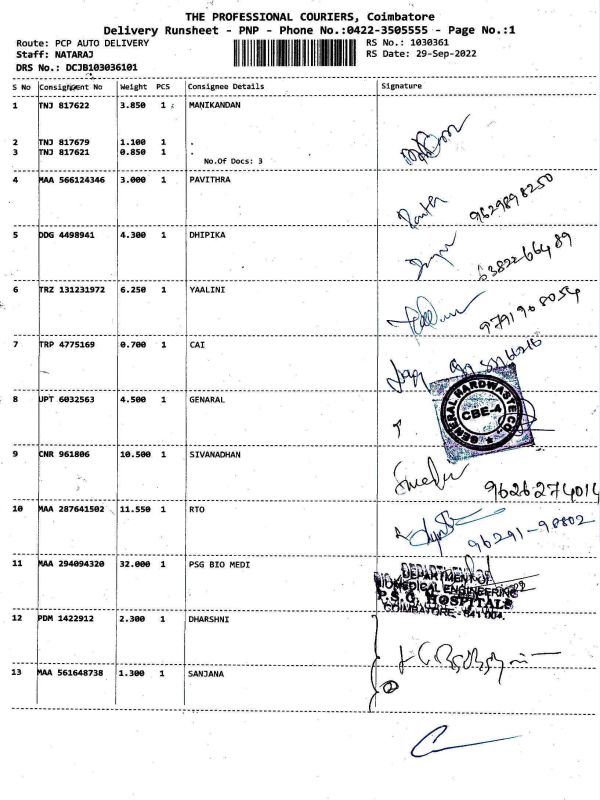 THE PROFESSIONAL COURIERS, Coimbatore
Delivery Runsheet - PNP - Phone No.:0422-3505555 - Page No.:1
Route: PCP AUTO DELIVERY RS No.: 1030361
Staff: NATARAJ RS Date: 29-Sep-2022
DRS No.: DCJB103036101
S No Consignment No Weight PCS Consignee Details Signature
1 TNJ 817622 3.850 1 MANIKANDAN
2 TNJ 817679 1.100 1 .
3 TNJ 817621 0.850 1 .
No.Of Docs: 3
4 MAA 566124346 3.000 1 PAVITHRA
9629898250
5 DDG 4498941 4.300 1 DHIPIKA
6382266489
6 TRZ 131231972 6.250 1 YAALINI
9791908054
7 TRP 4775169 0.700 1 CAI
8 UPT 6032563 4.500 1 GENARAL
GENERAL HARDWASTE CO
CBE-4
9 CNR 961806 10.500 1 SIVANADHAN
9626274014
10 MAA 287641502 11.550 1 RTO
96291-98802
11 MAA 294094320 32.000 1 PSG BIO MEDI
DEPARTMENT OF
BIOMEDICAL ENGINEERING
P.S.G. HOSPITALS
COIMBATORE - 641 004.
12 PDM 1422912 2.300 1 DHARSHNI
13 MAA 561648738 1.300 1 SANJANA
2